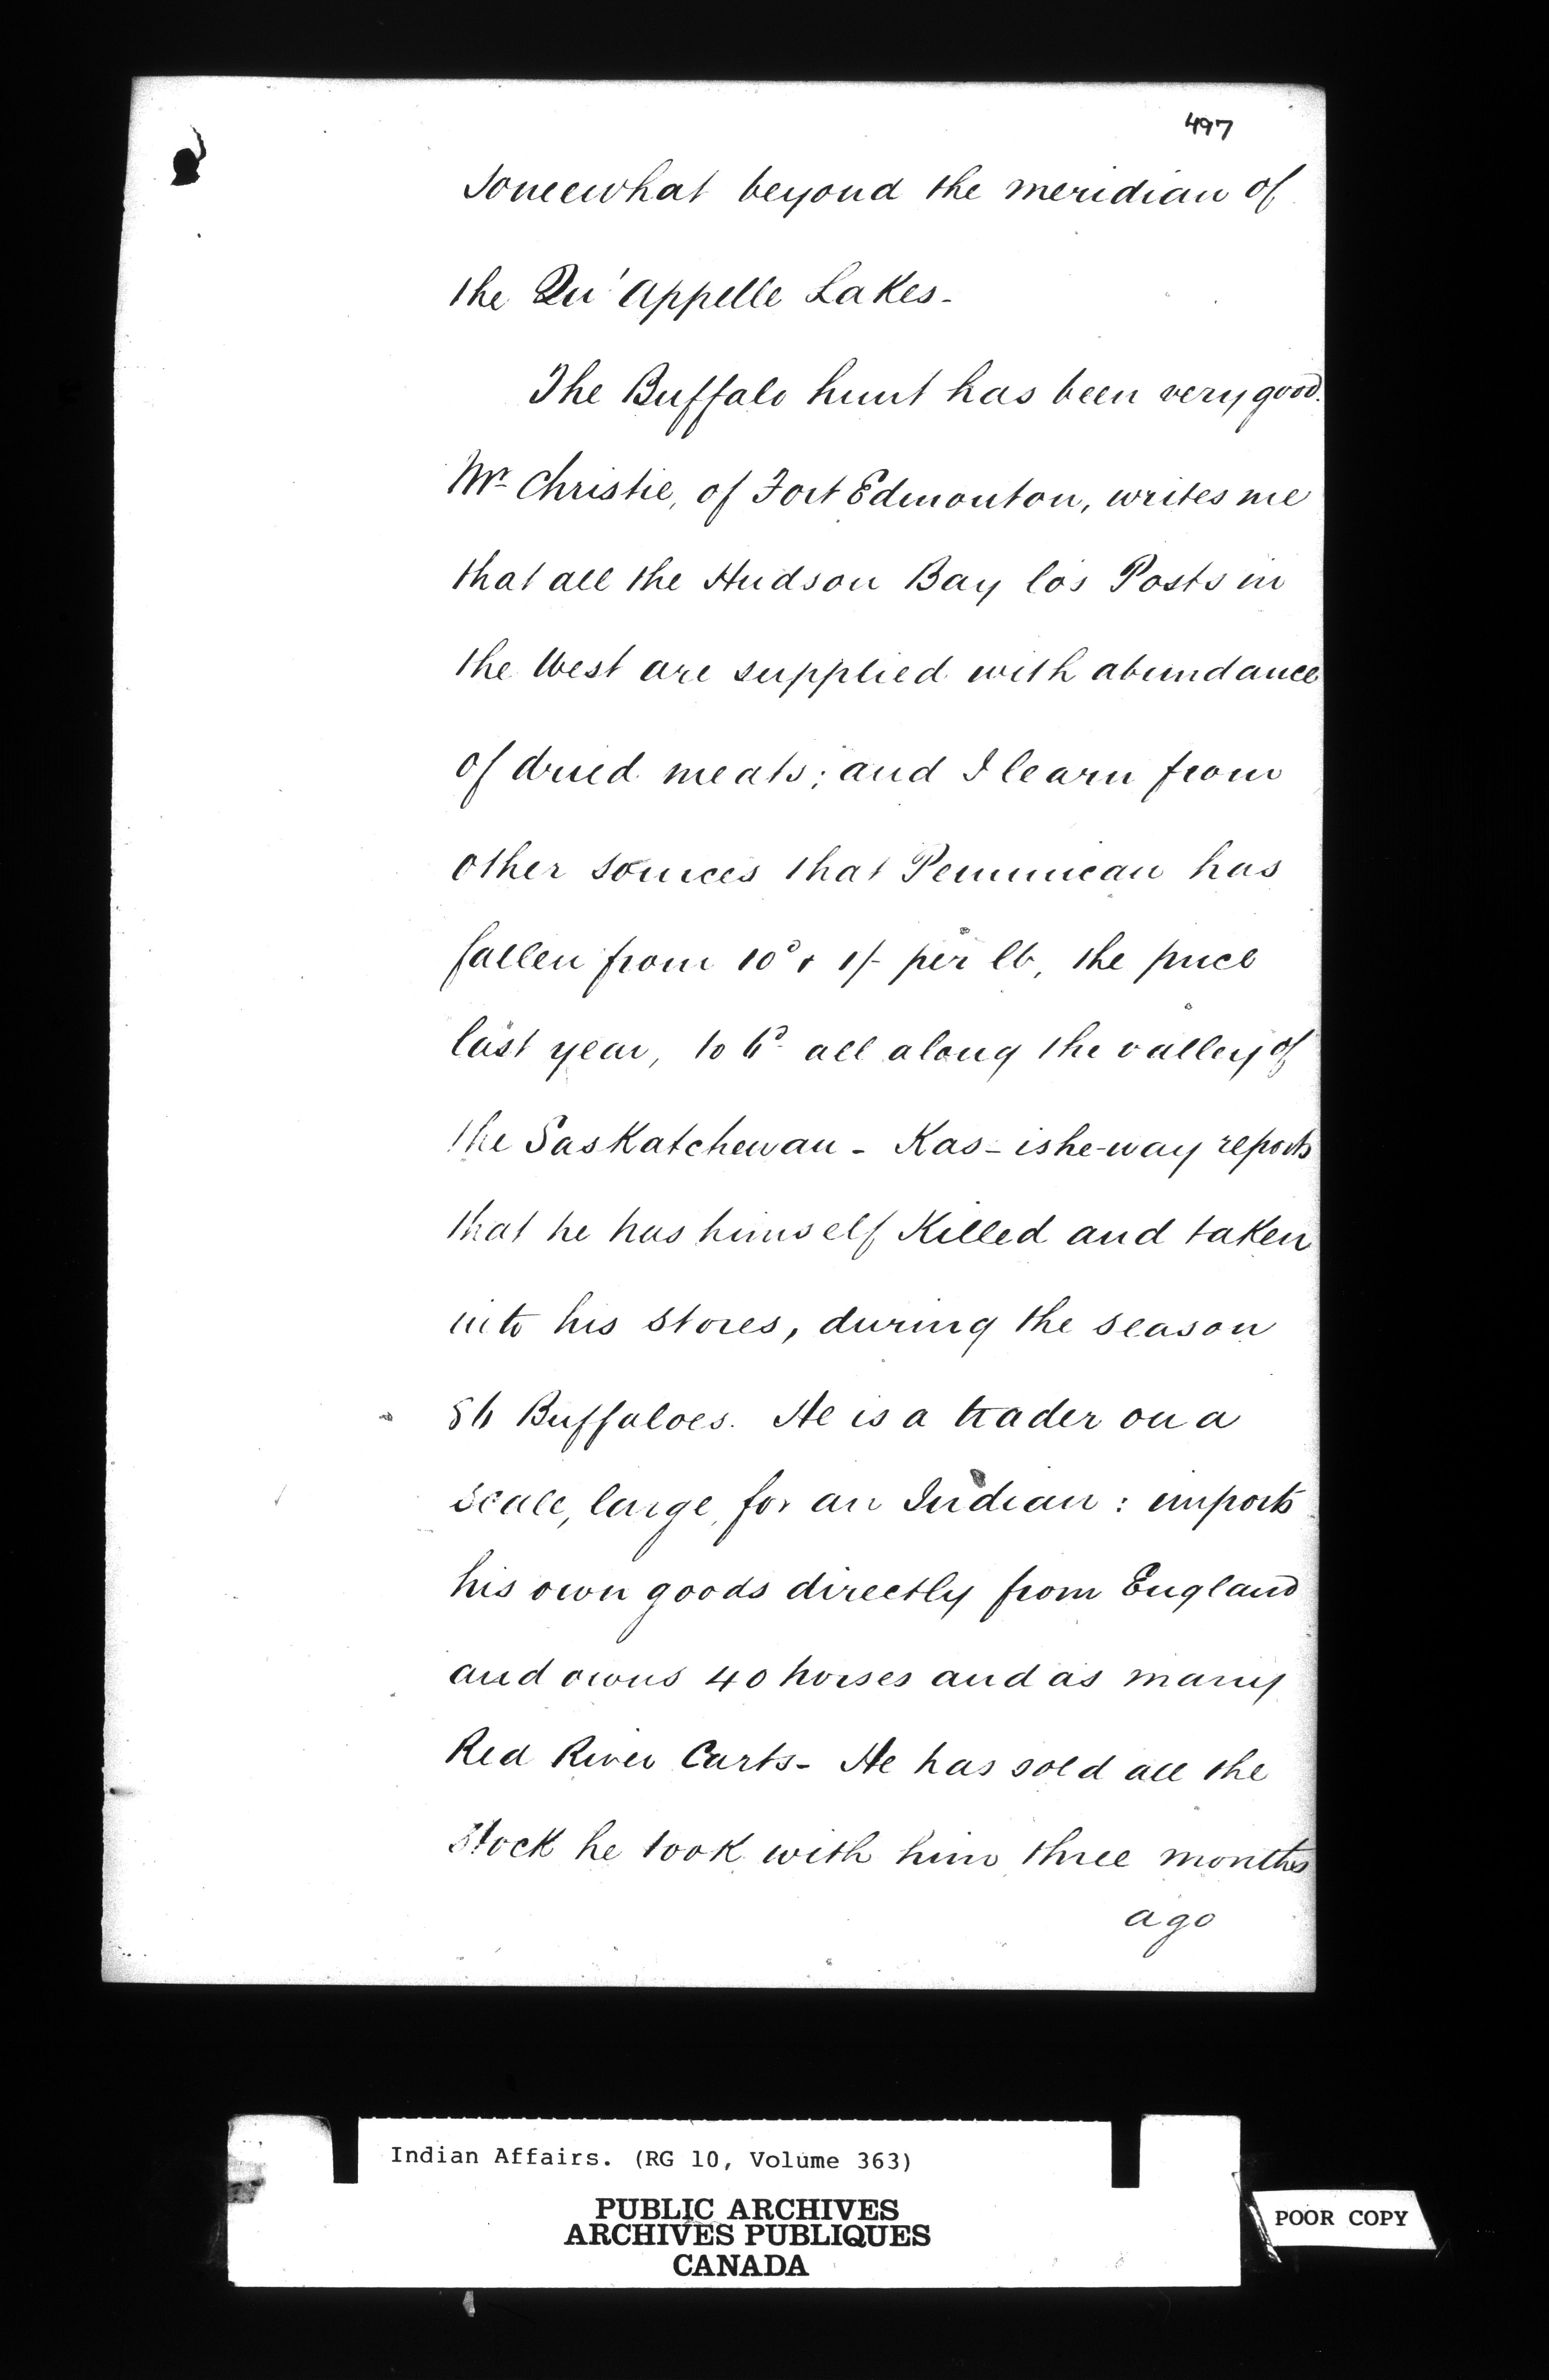 497
somewhat beyond the meridian of
the Qu'Appelle Lakes-
The Buffalo hunt has been very good.
Mr Christie, of Fort Edmonton, writes me
that all the Hudson Bay Co's Posts in
the West are supplied with abundance
of dried meats; and I learn from
other sources that Pemmican has
fallen from 10d & 1/- per lb, the price
last year, to 6d all along the valley of
the Saskatchewan - Kas-ishe-way reports
that he has himself Killed and taken
into his stores, during the season
86 Buffaloes. He is a trader on a
scale, large, for an Indian: imports
his own goods directly from England
and owns 40 horses and as many
Red River Carts- He has sold all the
Stock he took with him three months
ago
Indian Affairs. (RG 10, Volume 363)
PUBLIC ARCHIVES
ARCHIVES PUBLIQUES
CANADA
POOR COPY